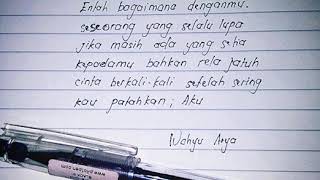 Entah bagaimana denganmu.
seseorang yang selalu lupa
jika masih ada yang setia
kepadamu bahkan rela jatuh
cinta berkali-kali setelah sering
kau patahkan; Aku
Wahyu Arya